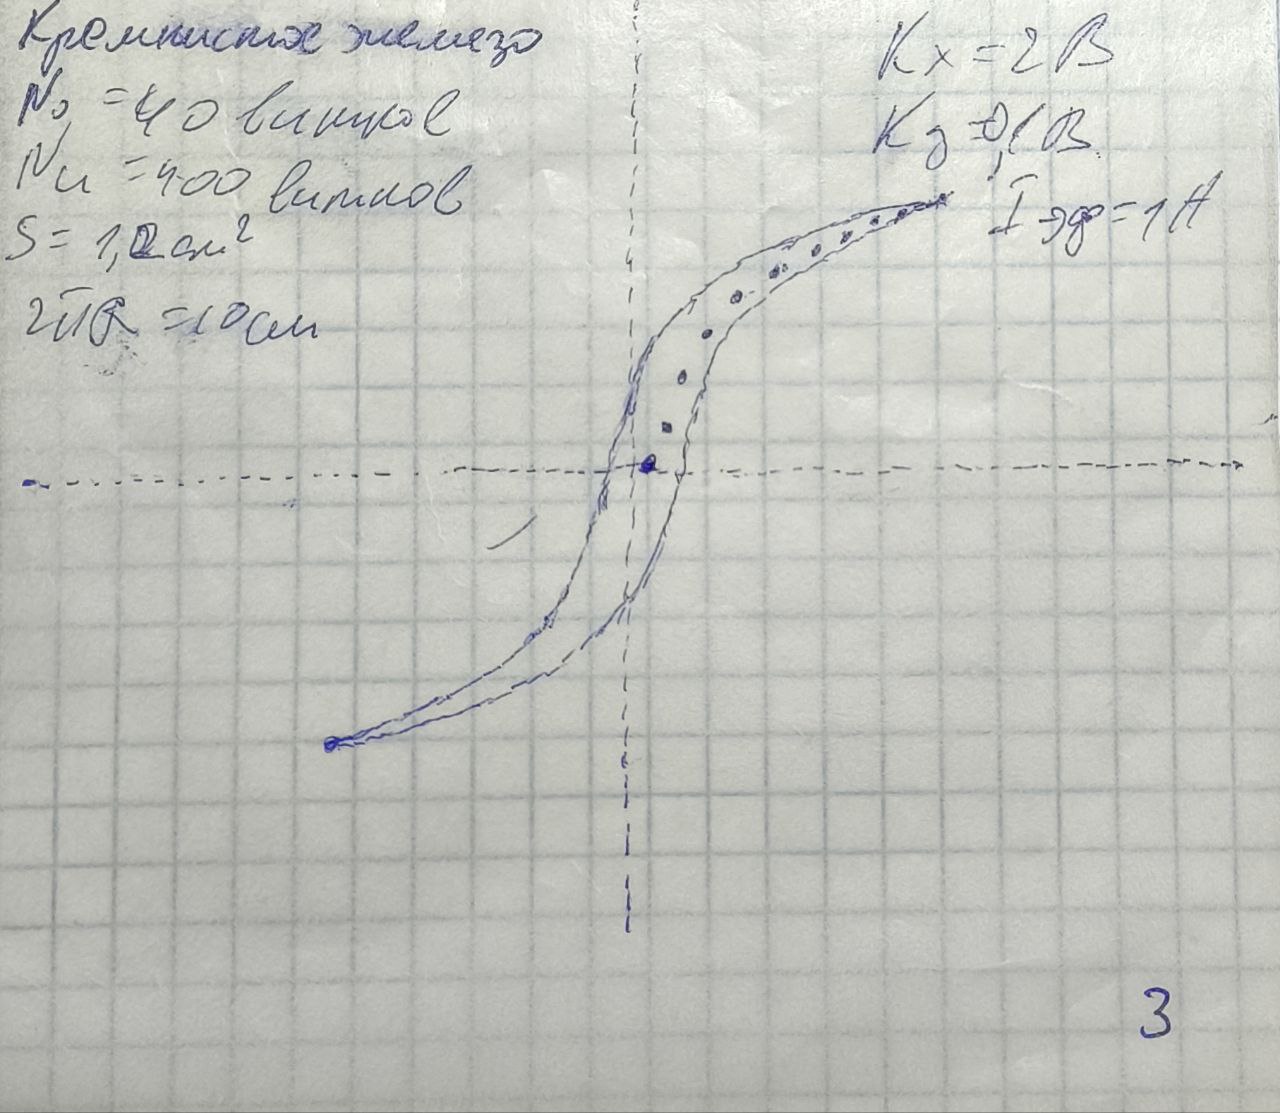 Кремнистое железо
N₀ = 40 витков
Nи = 400 витков
S = 1,2 см²
2πR = 10 см
Kx = 2 В
Ky = 0,1 В
Iэф = 1 А
3